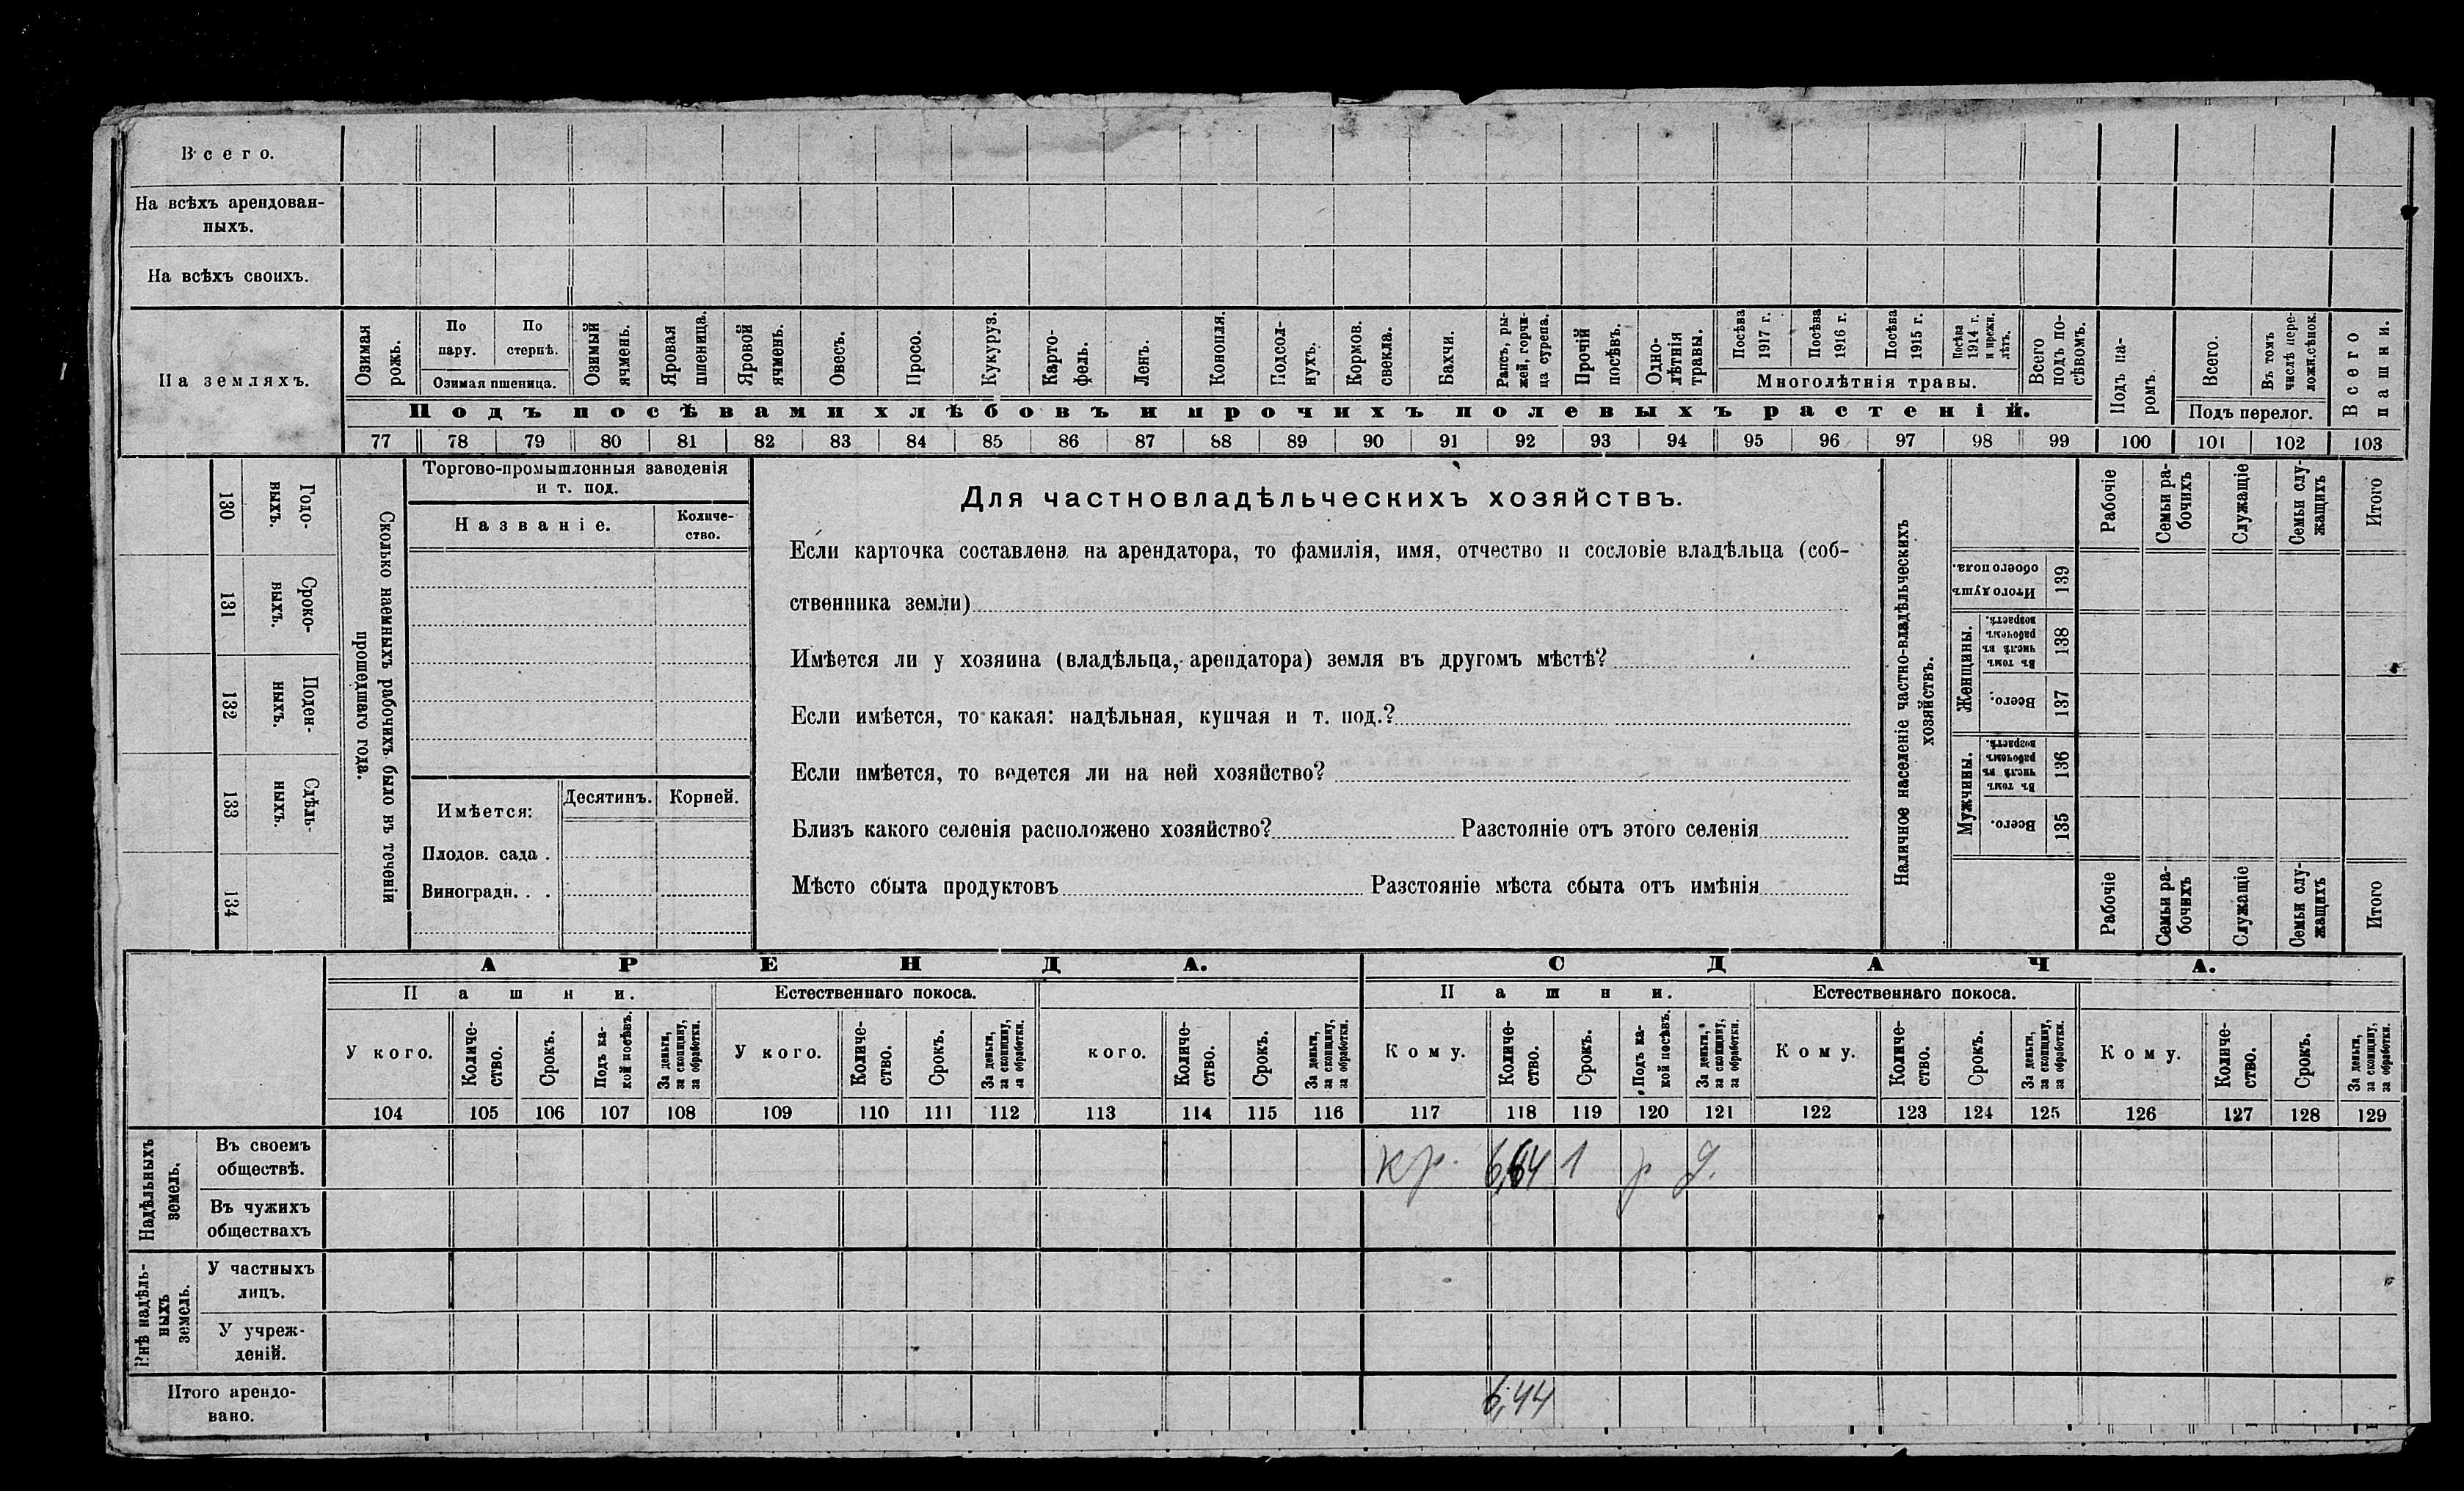 Всего.
На всѣхъ арендован-
ныхъ.
На всѣхъ своихъ.
На земляхъ.
Озимая рожь.
По пару.
По стернѣ.
Озимая пшеница.
Озимый ячмень.
Яровая пшеница.
Яровой ячмень.
Овесъ.
Просо.
Кукуруз.
Карто-
фель.
Ленъ.
Конопля.
Подсол-
нухъ.
Кормов. свекла.
Бахчи.
Рапсъ, ры-
жей, горчи-
ца сурепа.
Прочій посѣвъ.
Одно-
лѣтнія травы.
Посѣва 1917 г.
Посѣва 1916 г.
Посѣва 1915 г.
Посѣва 1914 г. и прежн. лѣтъ.
Многолѣтнія травы.
Всего подъ по-
сѣвомъ.
Подъ посѣвами хлѣбовъ и прочихъ полевыхъ растеній.
Подъ па-
ромъ.
Всего.
Въ томъ числѣ пере-
ложн.сѣнок.
Подъ перелог.
Всего пашни.
77 78 79 80 81 82 83 84 85 86 87 88 89 90 91 92 93 94 95 96 97 98 99 100 101 102 103
Годо-
выхъ.
130
Сроко-
выхъ.
131
Поден-
ныхъ.
132
Сдѣль-
ныхъ.
133
134
Сколько наемныхъ рабочихъ было въ теченіи
прошедшаго года.
Торгово-промышленныя заведенія
и т. под.
Названіе.
Количе-
ство.
Имѣется:
Десятинъ.
Корней.
Плодов. сада .
Виноградн. . .
Для частновладѣльческихъ хозяйствъ.
Если карточка составлена на арендатора, то фамилія, имя, отчество и сословіе владѣльца (соб-
ственника земли)
Имѣется ли у хозяина (владѣльца, арендатора) земля въ другомъ мѣстѣ?
Если имѣется, то какая: надѣльная, купчая и т. под.?
Если имѣется, то ведется ли на ней хозяйство?
Близъ какого селенія расположено хозяйство? Разстояніе отъ этого селенія
Мѣсто сбыта продуктовъ Разстояніе мѣста сбыта отъ имѣнія
Наличное населеніе частно-владѣльческихъ
хозяйствъ.
Рабочіе
Семьи ра-
бочихъ
Служащіе
Семьи слу-
жащихъ
Итого
Итого душъ обоего пола.
139
Женщины.
Въ томъ числѣ въ рабочемъ возрастѣ.
138
Всего.
137
Мужчины.
Въ томъ числѣ въ рабочемъ возрастѣ.
136
Всего.
135
Рабочіе
Семьи ра-
бочихъ
Служащіе
Семьи слу-
жащихъ
Итого
АРЕНДА.
СДАЧА.
Пашни.
Естественнаго покоса.
Пашни.
Естественнаго покоса.
У кого.
Количе-
ство.
Срокъ.
Подъ ка-
кой посѣвъ.
За деньги, за скопщину, за обработки.
У кого.
Количе-
ство.
Срокъ.
За деньги, за скопщину, за обработки.
кого.
Количе-
ство.
Срокъ.
За деньги, за скопщину, за обработки.
Кому.
Количе-
ство.
Срокъ.
Подъ ка-
кой посѣвъ.
За деньги, за скопщину, за обработки.
Кому.
Количе-
ство.
Срокъ.
За деньги, за скопщину, за обработки.
Кому.
Количе-
ство.
Срокъ.
За деньги, за скопщину, за обработки.
104 105 106 107 108 109 110 111 112 113 114 115 116 117 118 119 120 121 122 123 124 125 126 127 128 129
Надѣльныхъ
земель.
Въ своемъ
обществѣ.
кр. 1 р д.
Въ чужихъ
обществахъ
Внѣ надѣль-
ныхъ
земель.
У частныхъ
лицъ.
У учреж-
деній.
Итого арендо-
вано.
6,44